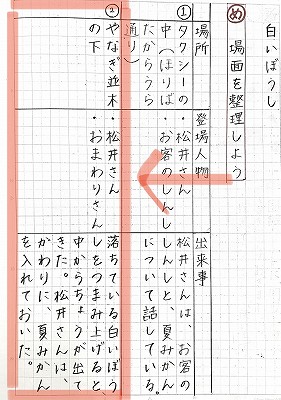 白いぼうし
め 場面を整理しよう
場所
登場人物
出来事
①
タクシーの
中（ほりば
たからうら
通り）
・松井さん
・お客のしんし
松井さんは、お客の
しんしと、夏みかん
について話している。
②
やなぎ並木
の下
・松井さん
・おまわりさん
落ちている白いぼう
しをつまみ上げると、
中からちょうが出て
きた。松井さんは、
かわりに、夏みかん
を入れておいた。